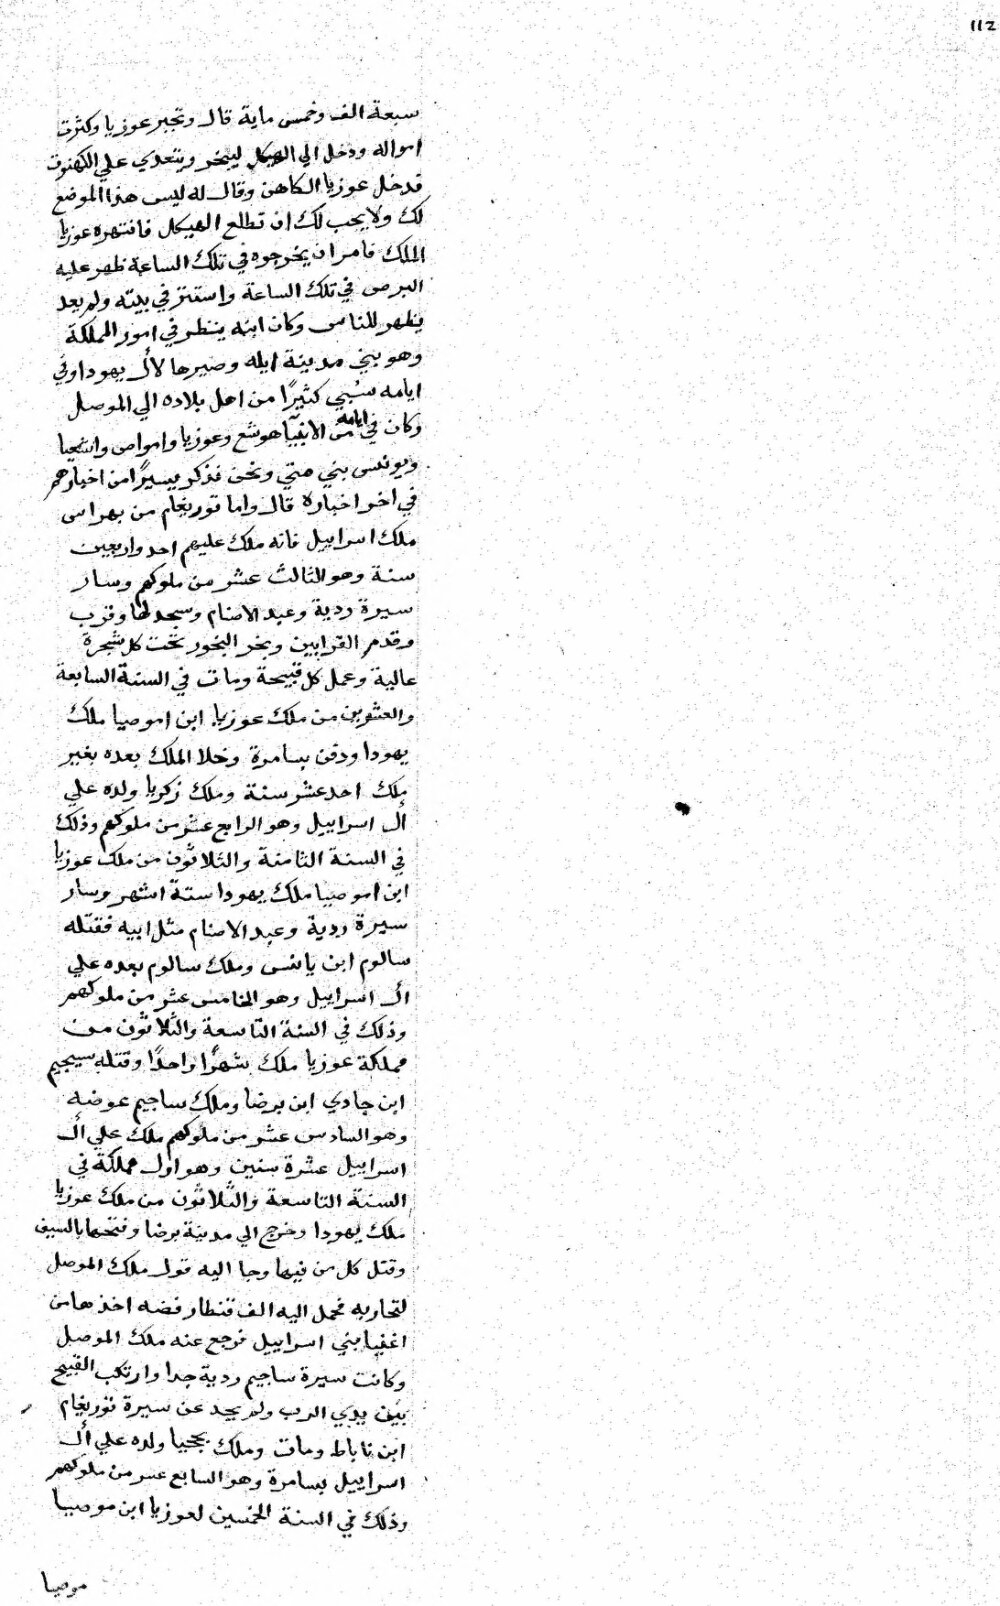 112
سبعة الف وخمس ماية قال وتجبر عوزيا وكثرت
امواله ودخل الي الهيكل ليبخر ويتعدي علي الكهنوت
فدخل عوزيا الكاهن وقال له ليس هذا الموضع
لك ولا يجب لك ان تطلع الهيكل فانتهره عوزيا
الملك فامر ان يخرجوه في تلك الساعة ظهر عليه
البرص في تلك الساعة واستتر في بيته ولم يعد
يظهر للناس وكان ابنه ينظر في امور المملكة
وهو بني مدينة ايله وصيرها لأل يهودا وفي
ايامه سُبي كثيرًا من اهل بلاده الي الموصل
وكان في ايامه من الانبيآ هوشع وعوزيا واموص واشعيا
ويونس بني متي ونحن نذكر يسيرًا من اخبارهم
في اخر اخباره قال واما توريغام من بهراس
ملك اسراييل فانه ملك عليهم احد واربعين
سنة وهو الثالث عشر من ملوكهم وسار
سيرة ردية وعبد الاصنام وسجد لها وقرب
وقدم القرابين وبخر البخور تحت كل شجرة
عالية وعمل كل قبيحة ومات في السنة السابعة
والعشرين من ملك عوزيا ابن اموصيا ملك
يهودا ودفن بسامرة وخلا الملك بعده بغير
ملك احد عشر سنة وملك زكريا ولده علي
أل اسراييل وهو الرابع عشر من ملوكهم وذلك
في السنة الثامنة والثلاثون من ملك عوزيا
ابن اموصيا ملك يهودا ستة اشهر وسار
سيرة ردية وعبد الاصنام مثل ابيه فقتله
سالوم ابن يانس وملك سالوم بعده علي
أل اسراييل وهو الخامس عشر من ملوكهم
وذلك في السنة التاسعة والثلاثون من
مملكة عوزيا ملك شهرًا واحدًا وقتله سيجيم
ابن جادي ابن برضا وملك ساجيم عوضه
وهو السادس عشر من ملوكهم ملك علي أل
اسراييل عشرة سنين وهو اول مملكة في
السنة التاسعة والثلاثون من ملك عوزيا
ملك يهودا وخرج الي مدينة برضا وفتحها بالسيف
وقتل كل من فيها وجا اليه قول ملك الموصل
لتحاربه فحمل اليه الف قنطار فضه اخذها من
اغنيا بني اسراييل فرجع عنه ملك الموصل
وكانت سيرة ساجيم ردية جدا وارتكب القبيح
بين يدي الرب ولم يحد عن سيرة توريغام
ابن ناباط ومات وملك بججيا ولده علي أل
اسراييل بسامرة وهو السابع عشر من ملوكهم
وذلك في السنة الخمسين لعوزيا ابن موصيا
موصيا